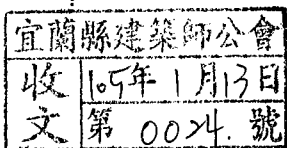 宜蘭縣建築師公會
收文 105年1月13日
第 0024. 號